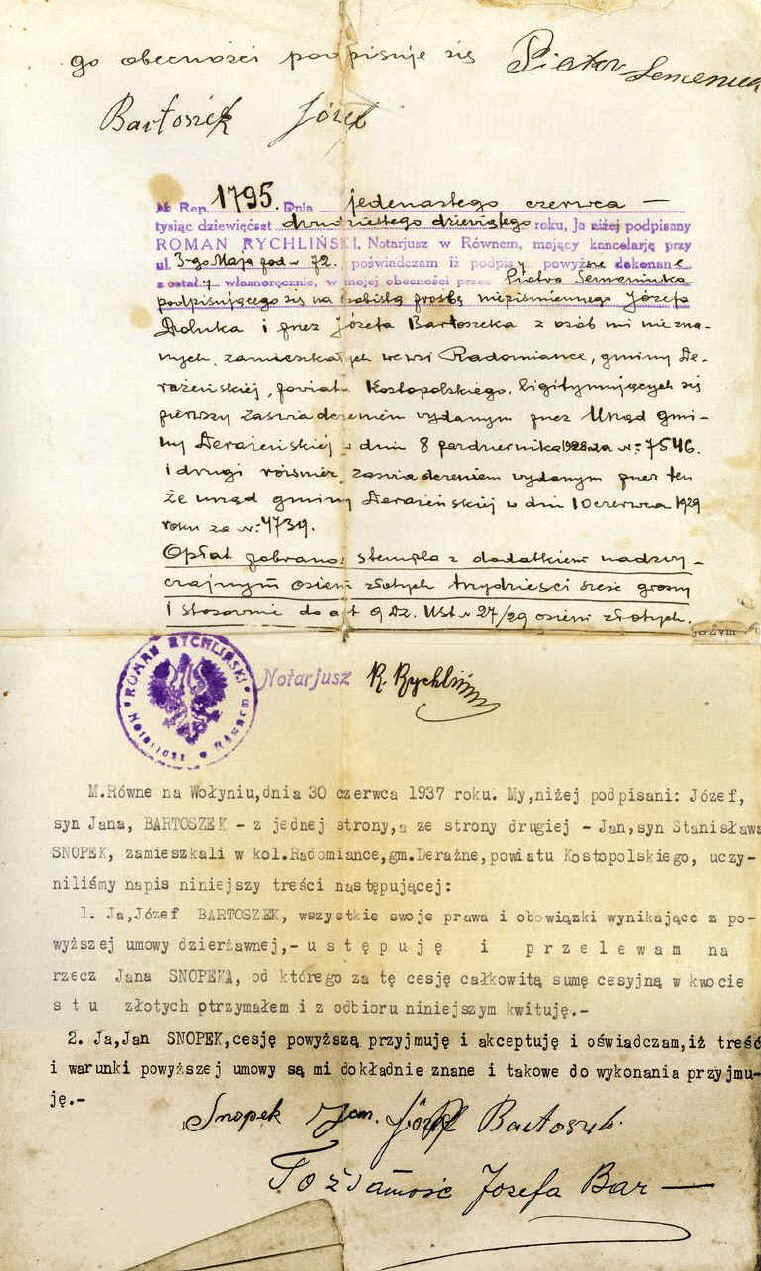 go obecności podpisuje się Piotr Semeniuk
Bartoszek Józef
№ Rep. 1795. Dnia jedenastego czerwca —
tysiąc dziewięćset dwudziestego dziewiątego roku, Ja niżej podpisany
ROMAN RYCHLIŃSKI, Notarjusz w Równem, mający kancelarję przy
ul. 3-go Maja pod № 72. poświadczam iż podpisy powyższe dokonane
zostały własnoręcznie, w mojej obecności przez Piotra Semeniuka
podpisującego się na osobistą prośbę niepiśmiennego Józefa
i przez Józefa Bartoszeka z osób mi niezna-
nych, zamieszkałych we wsi Radomiance, gminy De-
rażeńskiej, powiatu Kostopolskiego, legitymujących się
pierwszy zaświadczeniem wydanym przez Urząd gmi-
ny Derażeńskiej w dniu 8 października 1928 za №: 7546.
i drugi również zaświadczeniem wydanym przez ten
że urząd gminy Derażeńskiej w dniu 10 czerwca 1929
roku za №: 4739.
Opłat pobrano: stempla z dodatkiem nadzwy-
czajnym osiem złotych trzydzieści sześć groszy
i stosownie do art 9 Dz. Ust № 27/29 osiem złotych.
ROMAN RYCHLIŃSKI
Notarjusz w Równem
Notarjusz R. Rychliński
M.Równe na Wołyniu,dnia 30 czerwca 1937 roku. My,niżej podpisani: Józef,
syn Jana, BARTOSZEK - z jednej strony,a ze strony drugiej - Jan,syn Stanisława
SNOPEK, zamieszkali w kol.Radomiance,gm.Derażne,powiatu Kostopolskiego, uczy-
niliśmy napis niniejszy treści następującej:
1. Ja,Józef BARTOSZEK, wszystkie swoje prawa i obowiązki wynikające z po-
wyższej umowy dzierżawnej,- u s t ę p u j ę i p r z e l e w a m na
rzecz Jana SNOPEKA, od którego za tę cesję całkowitą sumę cesyjną w kwocie
s t u złotych otrzymałem i z odbioru niniejszym kwituję.-
2. Ja,Jan SNOPEK,cesję powyższą przyjmuję i akceptuję i oświadczam,iż treść
i warunki powyższej umowy są mi dokładnie znane i takowe do wykonania przyjmu-
ję.-
Snopek Jan. Józef Bartoszek.
Tożsamość Józefa Bar —